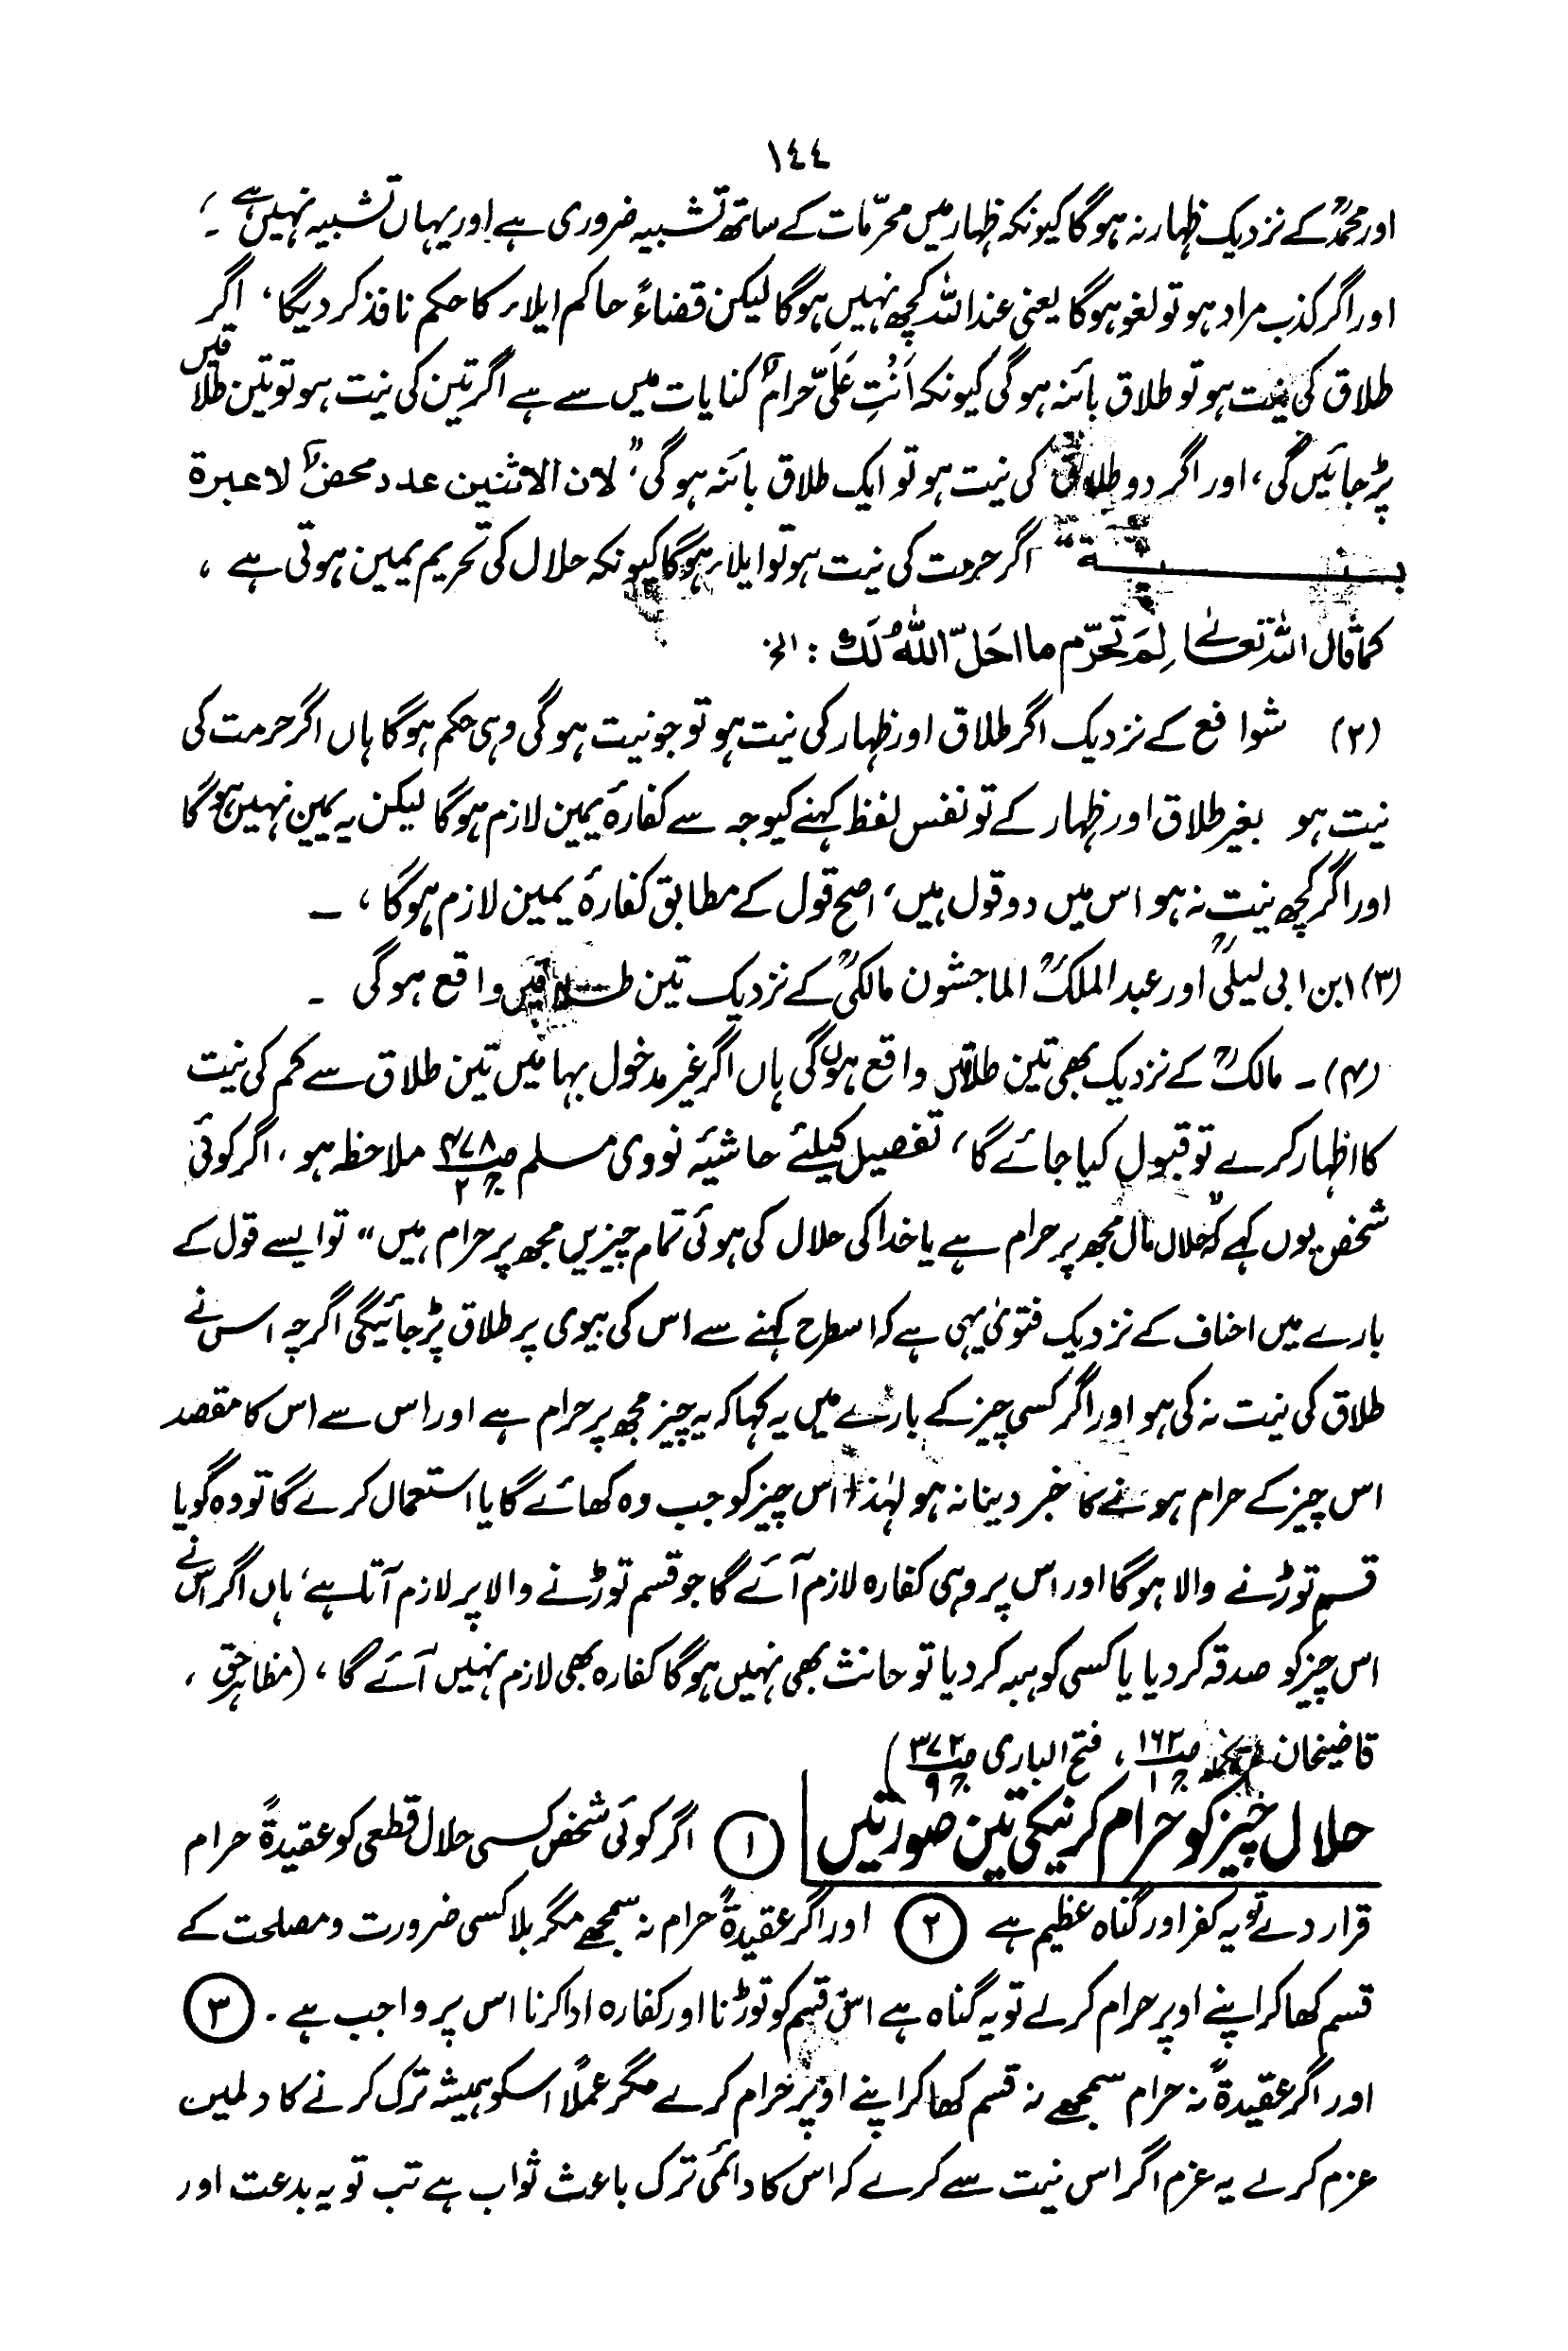 ١٤٤
اور محمدؒ کے نزدیک ظہار نہ ہوگا کیونکہ ظہار میں محرّمات کے ساتھ تشبیہ ضروری ہے اور یہاں تشبیہ نہیں ہے ۔،
اور اگر کذب مراد ہو تو لغو ہوگا یعنی عنداللہ کچھ نہیں ہوگا لیکن قضاءً حاکم ایلاء کا حکم نافذ کر دیگا، اگر
طلاق کی نیت ہو تو طلاق بائنہ ہوگی کیونکہ اَنْتِ عَلَیَّ حرامٌ کنایات میں سے ہے اگر تین کی نیت ہو تو تین طلاقیں
پڑ جائیں گی، اور اگر دو طلاق کی نیت ہو تو ایک طلاق بائنہ ہوگی ”لان الاثنین عدد محض لا عبرة
بنیـــــــــة“ اگر حرمت کی نیت ہو تو ایلاء ہوگا کیونکہ حلال کی تحریم یمین ہوتی ہے ،
کما قال اللہ تعالےٰ لِمَ تحرّم ما احَلّ اللّٰہُ لَكَ : الخ
(٢) شوافع کے نزدیک اگر طلاق اور ظہار کی نیت ہو تو جو نیت ہوگی وہی حکم ہوگا ہاں اگر حرمت کی
نیت ہو بغیر طلاق اور ظہار کے تو نفس لفظ کہنے کیوجہ سے کفارۂ یمین لازم ہوگا لیکن یہ یمین نہیں ہوگا
اور اگر کچھ نیت نہ ہو اس میں دو قول ہیں، اصح قول کے مطابق کفارۂ یمین لازم ہوگا ، ــ
(٣) ابن ابی لیلیؒ اور عبد الملکؒ الماجشون مالکیؒ کے نزدیک تین طلاقیں واقع ہوگی ۔
(۴) ۔ مالکؒ کے نزدیک بھی تین طلاقیں واقع ہوںگی ہاں اگر غیر مدخول بہا میں تین طلاق سے کم کی نیت
کا اظہار کرے تو قبول کیا جائے گا، تفصیل کیلئے حاشیۂ نووی مسلم صـ۴٧٨ جـ٢ ملاحظہ ہو ، اگر کوئی
شخص یوں کہے کہ ”حلال مال مجھ پر حرام ہے یا خدا کی حلال کی ہوئی تمام چیزیں مجھ پر حرام ہیں“ تو ایسے قول کے
بارے میں احناف کے نزدیک فتویٰ یہی ہے کہ اسطرح کہنے سے اس کی بیوی پر طلاق پڑ جائیگی اگرچہ اس نے
طلاق کی نیت نہ کی ہو اور اگر کسی چیز کے بارے میں یہ کہا کہ یہ چیز مجھ پر حرام ہے اور اس سے اس کا مقصد
اس چیز کے حرام ہونے کا خبر دینا نہ ہو لہٰذا اس چیز کو جب وہ کھائے گا یا استعمال کرے گا تو وہ گویا
قسم توڑنے والا ہوگا اور اس پر وہی کفارہ لازم آئے گا جو قسم توڑنے والا پر لازم آتا ہے، ہاں اگر اس نے
اس چیز کو صدقہ کر دیا یا کسی کو ہبہ کر دیا تو حانث بھی نہیں ہوگا کفارہ بھی لازم نہیں آئے گا ، (مظاہر حق ،
قاضیخان صـ١٦٢ جـ١ ، فتح الباری صـ٣٧٢ جـ٩ )
حلال چیز کو حرام کرنیکی تین صورتیں (١) اگر کوئی شخص کسی حلال قطعی کو عقیدةً حرام
قرار دے تو یہ کفر اور گناہ عظیم ہے (٢) اور اگر عقیدةً حرام نہ سمجھے مگر بلا کسی ضرورت و مصلحت کے
قسم کھا کر اپنے اوپر حرام کرلے تو یہ گناہ ہے اس قسم کو توڑنا اور کفارہ ادا کرنا اس پر واجب ہے ۔ (٣)
اور اگر عقیدةً نہ حرام سمجھے نہ قسم کھا کر اپنے اوپر حرام کرے مگر عملاً اسکو ہمیشہ ترک کرنے کا دلمیں
عزم کرلے یہ عزم اگر اس نیت سے کرے کہ اس کا دائمی ترک باعث ثواب ہے تب تو یہ بدعت اور